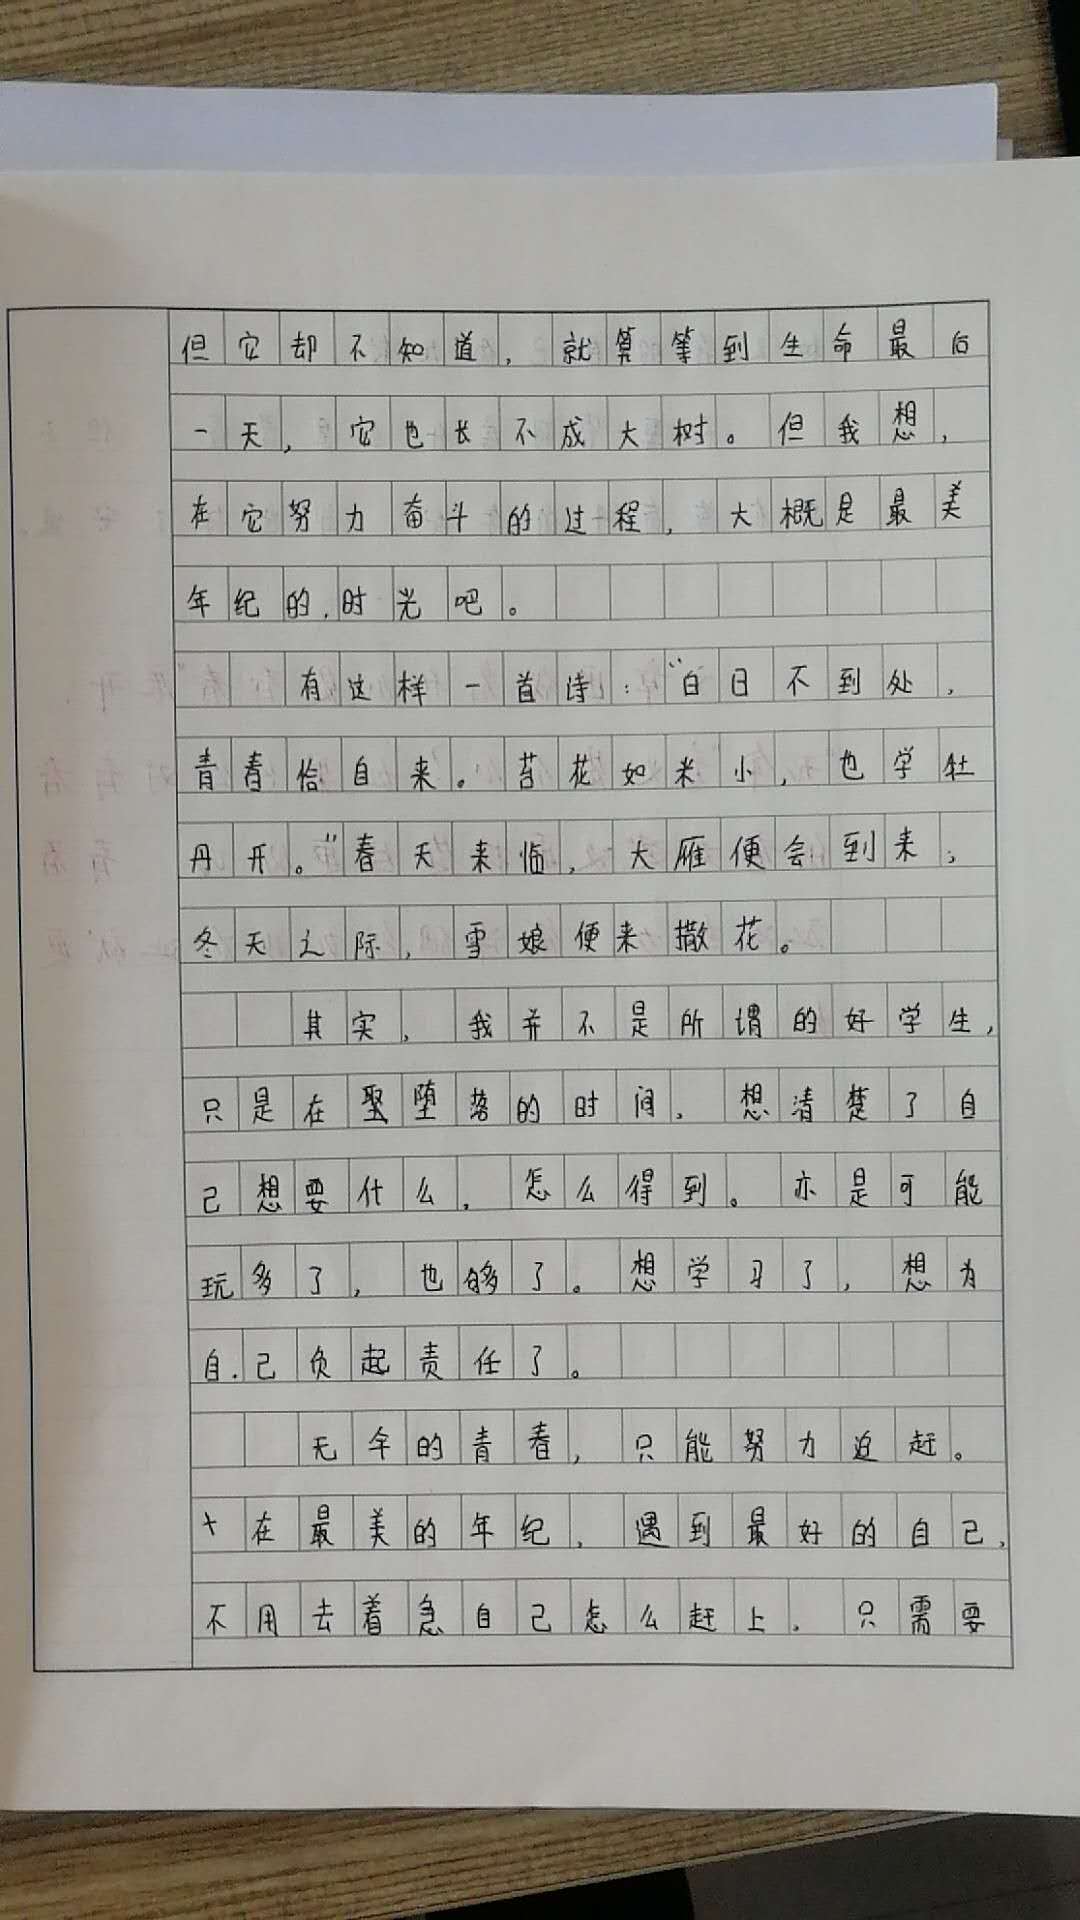 但它却不知道，就算等到生命最后
一天，它也长不成大树。但我想，
在它努力奋斗的过程，大概是最美
年纪的时光吧。
有这样一首诗：“白日不到处，
青春恰自来。苔花如米小，也学牡
丹开。”春天来临，大雁便会到来；
冬天之际，雪娘便来撒花。
其实，我并不是所谓的好学生，
只是在堕落的时间，想清楚了自
己想要什么，怎么得到。亦是可能
玩多了，也够了。想学习了，想为
自己负起责任了。
无伞的青春，只能努力追赶。
在最美的年纪，遇到最好的自己，
不用去着急自己怎么赶上，只需要